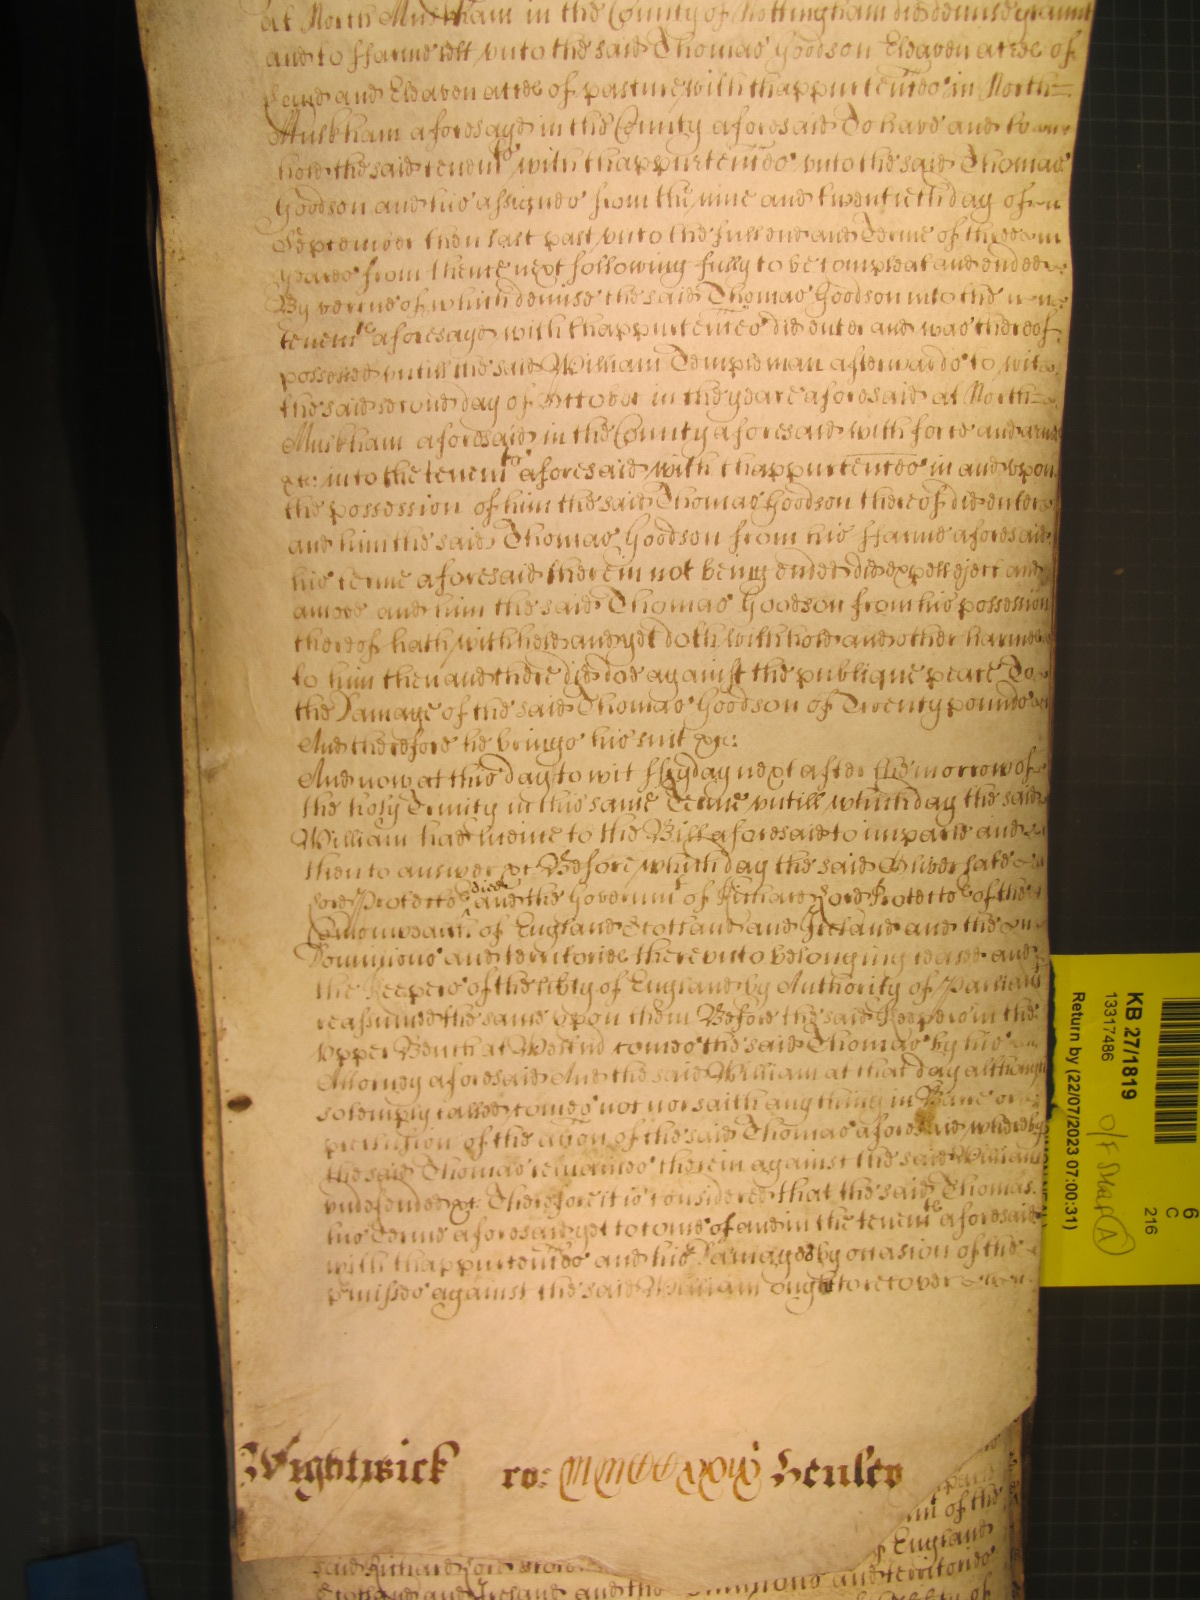 at North Muskham in the County of Nottingham did demise graunt
and to ffarme lett unto the said Thomas Goodson Eleaven acres of
Land and Eleaven acres of pasture with thappurtenñces in North
Muskham aforesayd in the County aforesaid To have and to
hold the said tenemts with thappurtenñces unto the said Thomas
Goodson and his assignes from the nine and twentieth day of
September then last past unto the full end and Terme of three
yeares from thence next following fully to be compleat and ended
By vertue of which demise the said Thomas Goodson into the
tenemts aforesayd with thappurtenñces did enter and was thereof
possessed untill the said William Templeman afterwards to wit
the said second day of October in the yeare aforesaid at North
Muskham aforesaid in the County aforesaid with force and armes
&c: into the tenemts aforesaid with thappurtenñces in and upon
the possession of him the said Thomas Goodson thereof did enter
and him the said Thomas Goodson from his ffarme aforesaid
his terme aforesaid therein not being ended did expell eject and
amove and him the said Thomas Goodson from his possession
thereof hath withheld and yet doth withhold and other harmes
to him then and there did doe against the publique peace To
the Damage of the said Thomas Goodson of Twenty pounds
And therefore he brings his suit &c:
And now at this day to wit ffryday next after the morrow of
the holy Trinity in this same Terme untill which day the said
William had licence to the Bill aforesaid to imparle and
then to answer &c Before which day the said Oliver late
Lord Protector died and the Governmt of Richard Lord Protector of the
Comonwealth of England Scotland and Ireland and the
Dominions and territories thereunto belonging ceased and
the Keepers of the libty of England by Authority of Parliamt
reassumed the same upon them Before the said Keepers in the
Upper Bench at Westmd comes the said Thomas by his
Attorney aforesaid And the said William at that day although
solemply called comes not nor saith any thing in Barre or
preclusion of the accon of the said Thomas aforesaid whereby
the said Thomas remaines therein against the said William
undefended &c Therefore it is considered that the said Thomas
his Terme aforesaid yet to come of and in the tenemts aforesaid
with thappurtenñces and his Damages by occasion of the
pmisses against the said William ought to recover
Wightwick ro: Henley
said Richard Lord
of the
England
Scotland and Ireland and the Dominions and territories
of
KB 27/1819
13317486
Return by (22/07/2023 07:00:31)
6
C
216
A